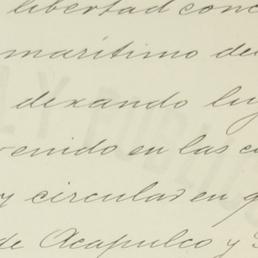 libertad conc
maritimo de
dexando lu
venido en las c
y circulad en q
de Acapulco y